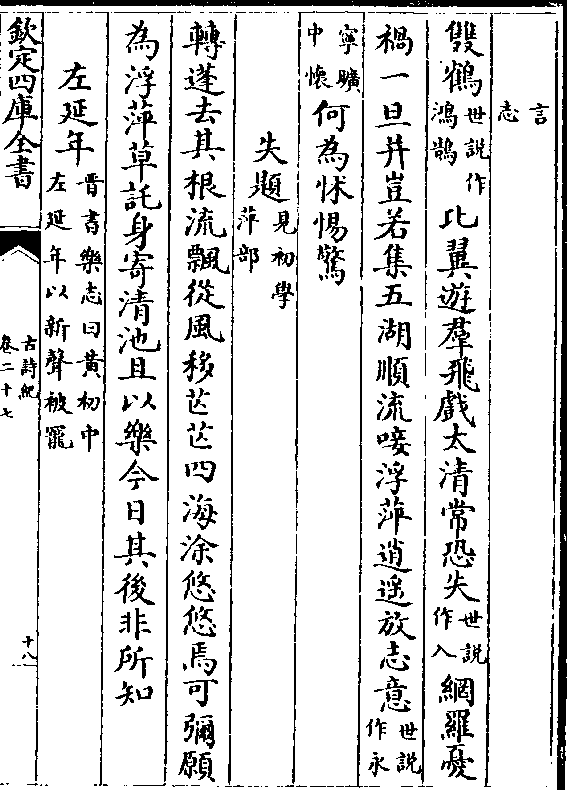 言志
雙鶴世説作鴻鵠比翼遊羣飛戲太清常恐失世説作入網羅憂
禍一旦并豈若集五湖順流唼浮萍逍遥放志意世説作永
寧曠中懷何為怵惕驚
失題見初學萍部
轉蓬去其根流飄從風移芒芒四海涂悠悠焉可彌願
為浮萍草託身寄清池且以樂今日其後非所知
左延年晉書樂志曰黄初中左延年以新聲被寵
欽定四庫全書
古詩紀
卷二十七
十八